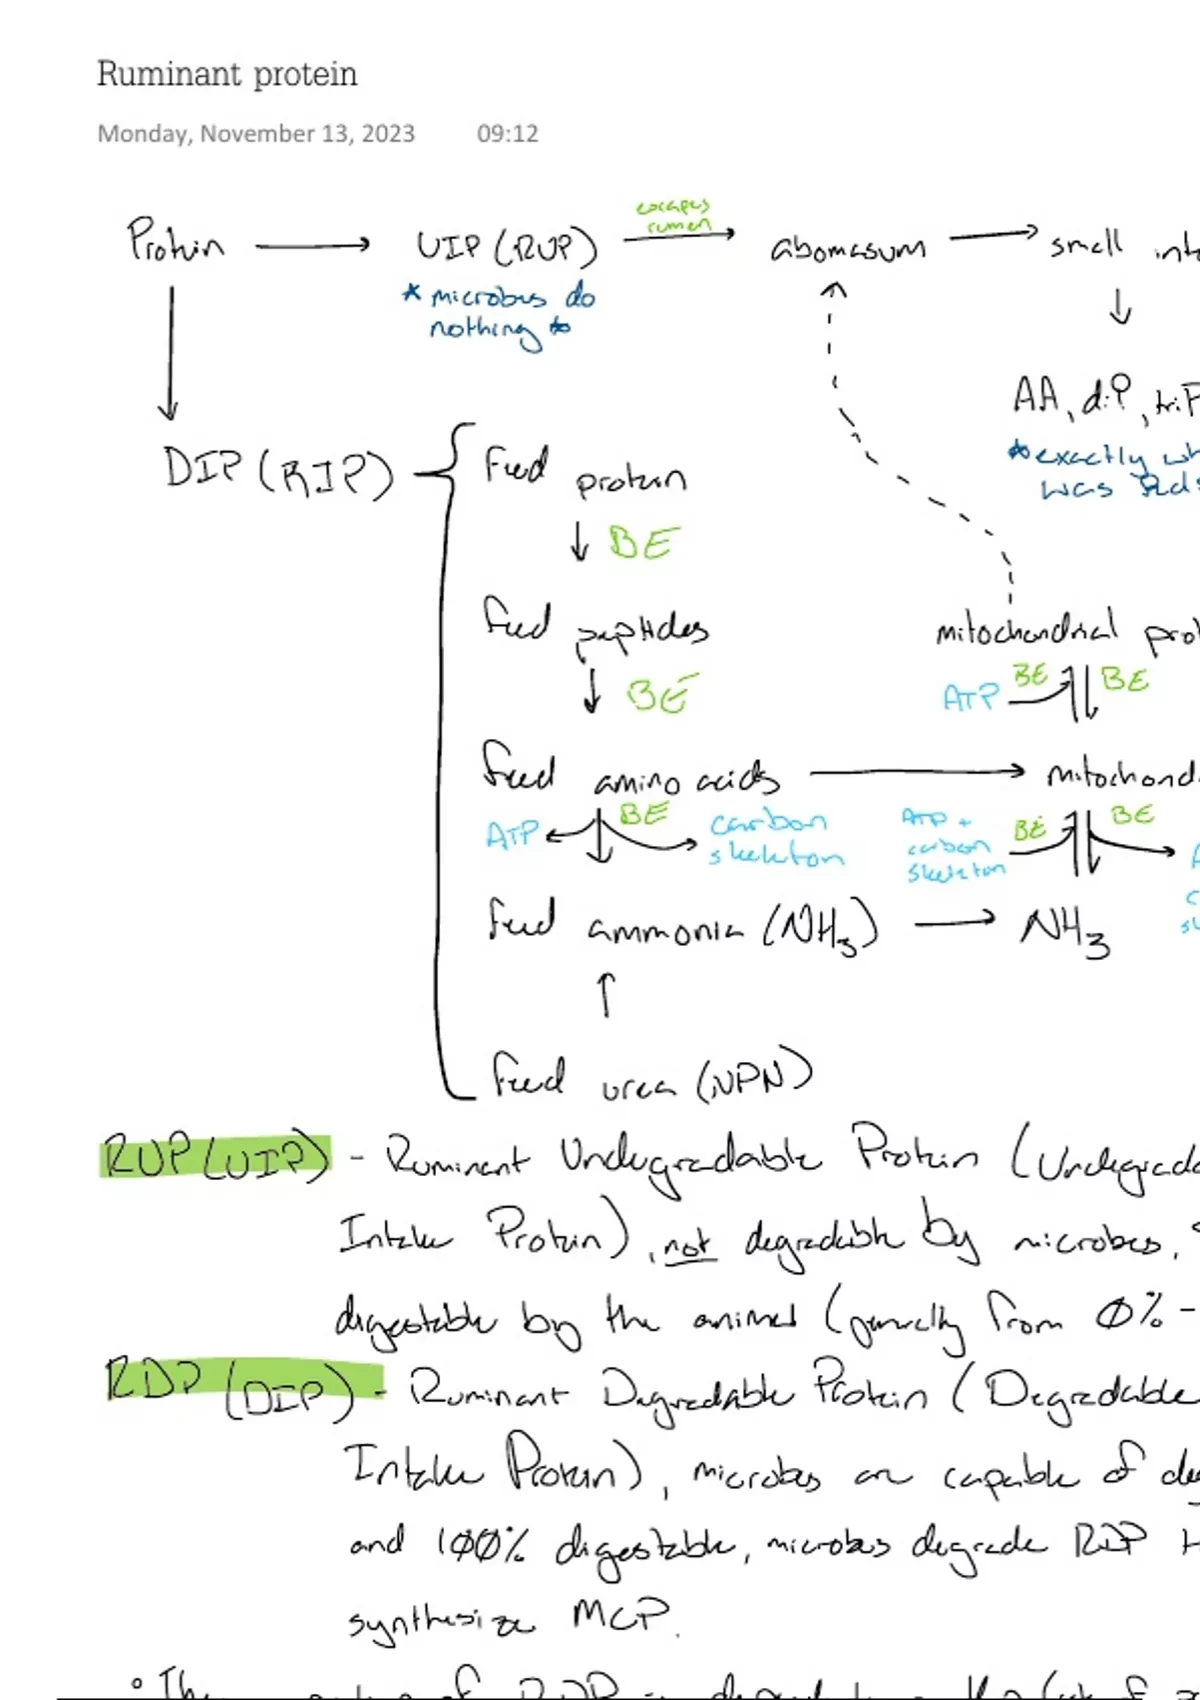 Ruminant protein
Monday, November 13, 2023 09:12
escapes
rumen
Protein → UIP (RUP) → abomasum → small
* microbes do
nothing *
AA, diP, triP
* exactly
was
DIP (RIP)
Feed protein
↓ BE
Feed peptides
mitochondrial
↓ BE
ATP BE BE
Feed amino acids →
ATP BE carbon
skeleton
ATP +
carbon
skeleton
BE BE
Feed ammonia (NH3) → NH3
↑
Feed urea (NPN)
RUP (UIP) - Ruminant Undegradable Protein
Intake Protein), not degradable by microbes,
digestable by the animal (generally from 0% -
RDP (DIP) - Ruminant Degradable Protein (Degradable
Intake Protein), microbes are capable of
and 100% digestable, microbes degrade RDP
synthesize MCP.